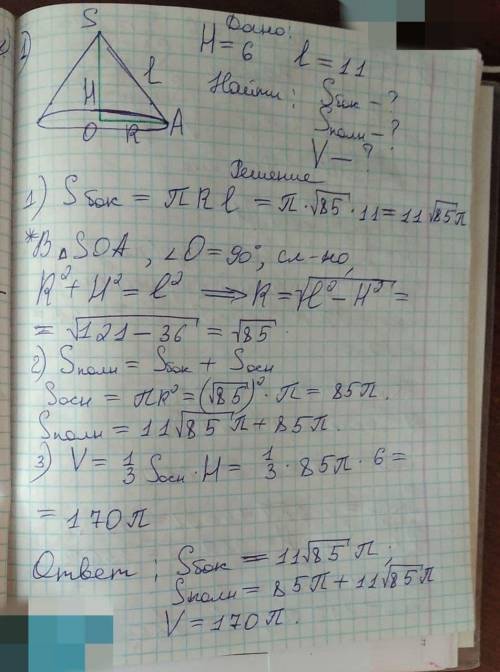 1)
S
H
l
O
R
A
Дано:
H = 6 l = 11
Найти: Sбок - ?
Sполн - ?
V - ?
Решение
1) Sбок = πRl = π·√85·11 = 11√85π
*В △SOA, ∠O = 90°, сл-но,
R² + H² = l² ⟹ R = √l² − H² =
= √121 − 36 = √85.
2) Sполн = Sбок + Sосн
Sосн = πR² = (√85)²·π = 85π.
Sполн = 11√85π + 85π.
3) V = 1/3 Sосн·H = 1/3·85π·6 =
= 170π
Ответ: Sбок = 11√85π;
Sполн = 85π + 11√85π
V = 170π.